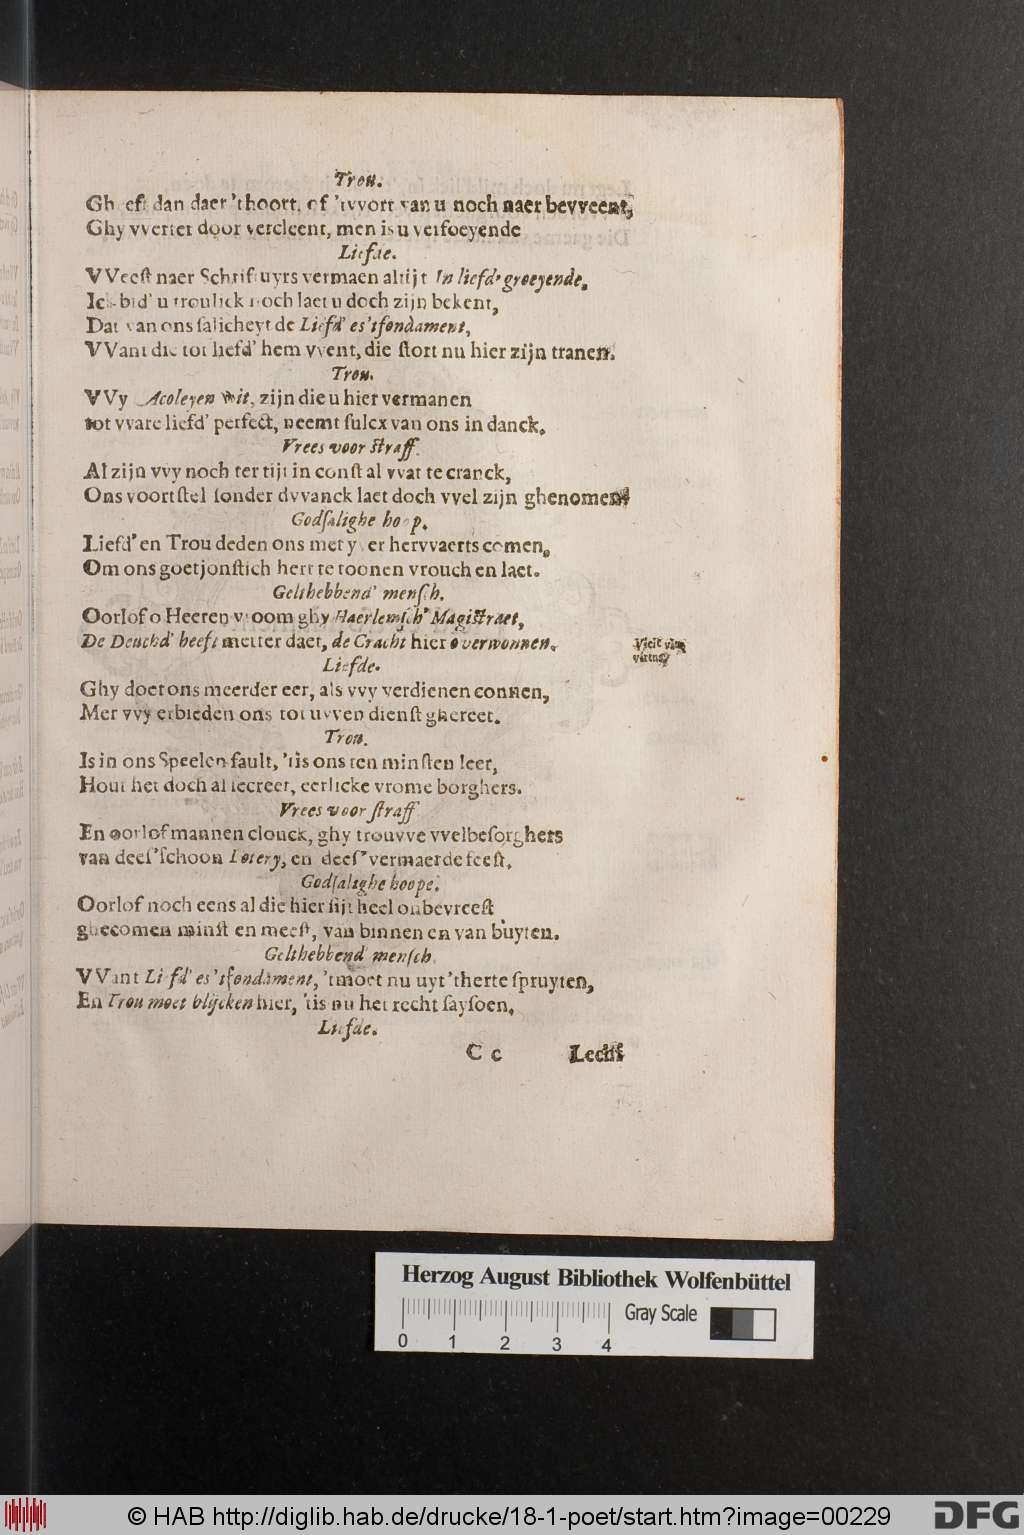 Trou.
Gh eft dan daer 'thoort, of 'tvvort van u noch naer bevveent,
Ghy vvertet door vercleent, men is u verfoeyende
Liefde.
VVeeſt naer Schriftuyrs vermaen altijt In liefd' groeyende,
Ick bid' u troulick noch laet u doch zijn bekent,
Dat van ons ſalicheyt de Liefd' es 'tfondament,
VVant die tot liefd' hem vvent, die ſtort nu hier zijn tranen.
Trou.
VVy Acoleyen wit, zijn die u hier vermanen
tot vvare liefd' perfect, neemt ſulcx van ons in danck.
Vrees voor ſtraff.
Al zijn vvy noch ter tijt in conſt al vvat te cranck,
Ons voortſtel ſonder dvvanck laet doch vvel zijn ghenomen
Godſalighe hoop.
Liefd' en Trou deden ons met yver hervvaerts comen,
Om ons goetjonſtich hert te toonen vrouch en laet.
Gelthebbend' menſch.
Oorlof o Heeren vroom ghy Haerlemſch' Magiſtraet,
De Deuchd' heeft metter daet, de Cracht hier overwonnen.
Liefde.
Ghy doet ons meerder eer, als vvy verdienen connen,
Met vvy erbieden ons tot uvven dienſt ghereet.
Trou.
Is in ons Speelen fault, 'tis ons ten minſten leet,
Hout het doch al ſecreet, eerlicke vrome borghers.
Vrees voor ſtraff
En oorlof mannen clouck, ghy trouvve vvelbeſorghers
van deeſ' ſchoon Lotery, en deeſ' vermaerde feeſt,
Godſalighe hoope.
Oorlof noch eens al die hier ſijt heel onbevreeſt
ghecomen minſt en meeſt, van binnen en van buyten.
Gelthebbend menſch.
VVant Liefd' es 'tfondament, 'tmoet nu uyt 'therte ſpruyten,
En Trou moet blijcken hier, 'tis nu het recht ſayſoen,
Liefde.
C c
Leeſt
Herzog August Bibliothek Wolfenbüttel
Gray Scale
0 1 2 3 4
© HAB http://diglib.hab.de/drucke/18-1-poet/start.htm?image=00229
DFG